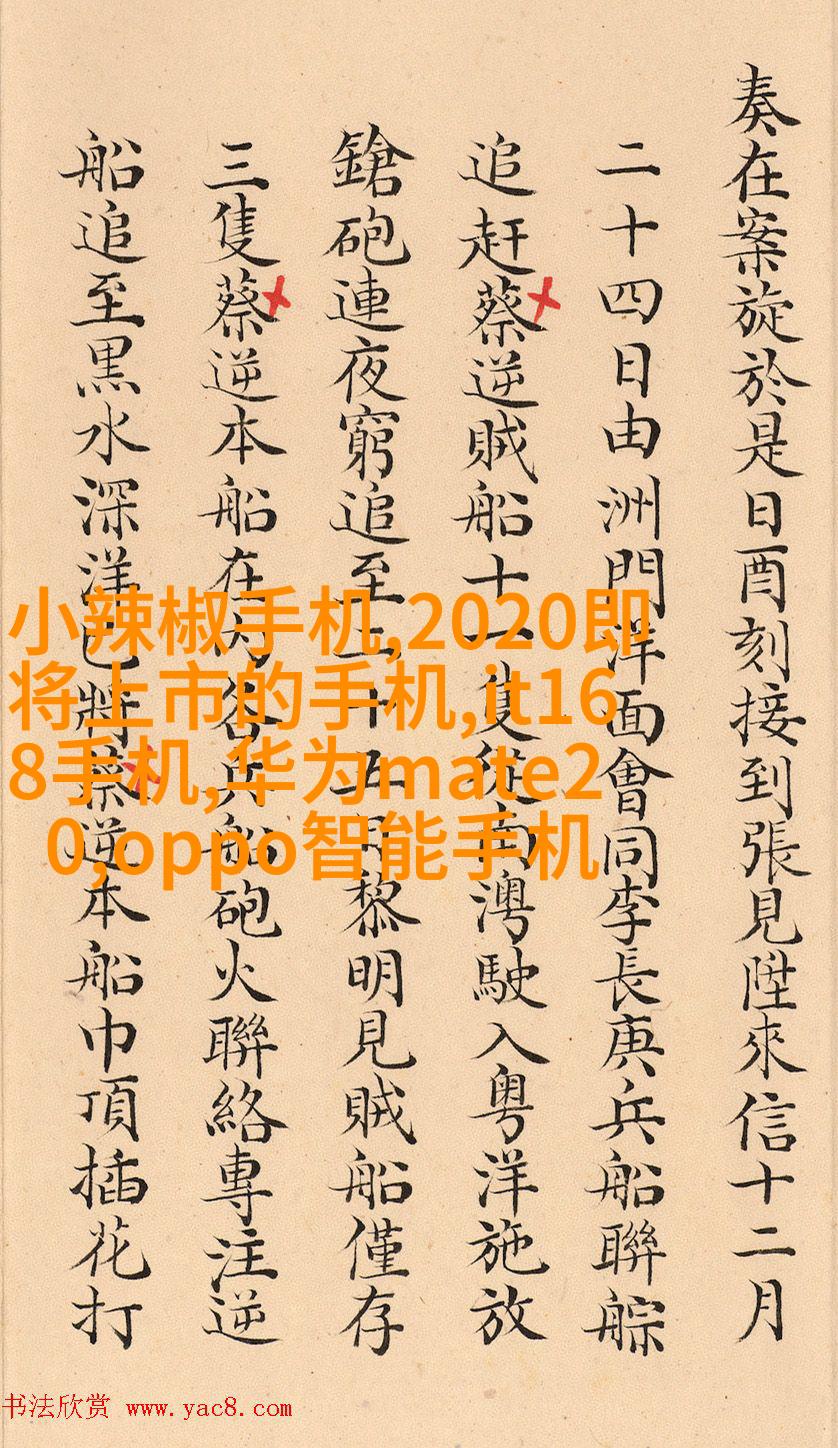 奏在案旋於是日酉刻接到張見陞來信十二月
二十四日由洲門洋面會同李長庚兵船聯䑸
追赶蔡逆賊船十一隻從南澳駛入粤洋施放
鎗砲連夜窮追至二十五日黎明見賊船僅存
三隻蔡逆本船在内各兵船砲火聯絡專注逆
船追至黒水深洋已將蔡逆本船巾頂插花打
小辣椒手机,2020即
将上市的手机,it16
8手机,华为mate2
0,oppo智能手机
书法欣赏 www.yac8.com